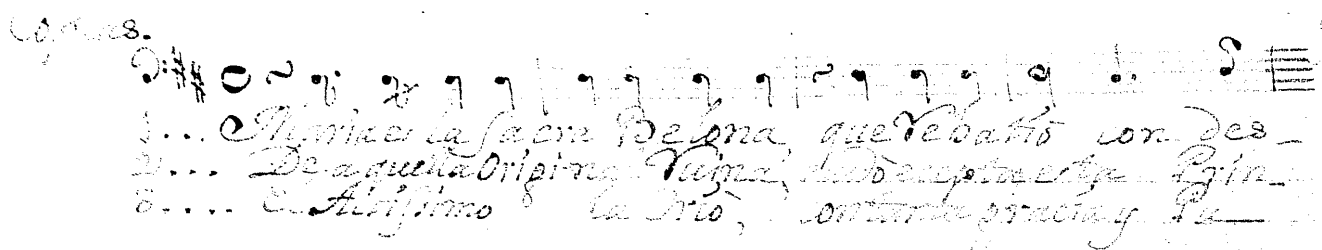 Coplas.
1... Maria es la Sacra Belona, que rebatió con des_
2... De aquella Origina Ruina, esta Prin_
3.... El Altissimo la crió, con tanta gracia y Pu_